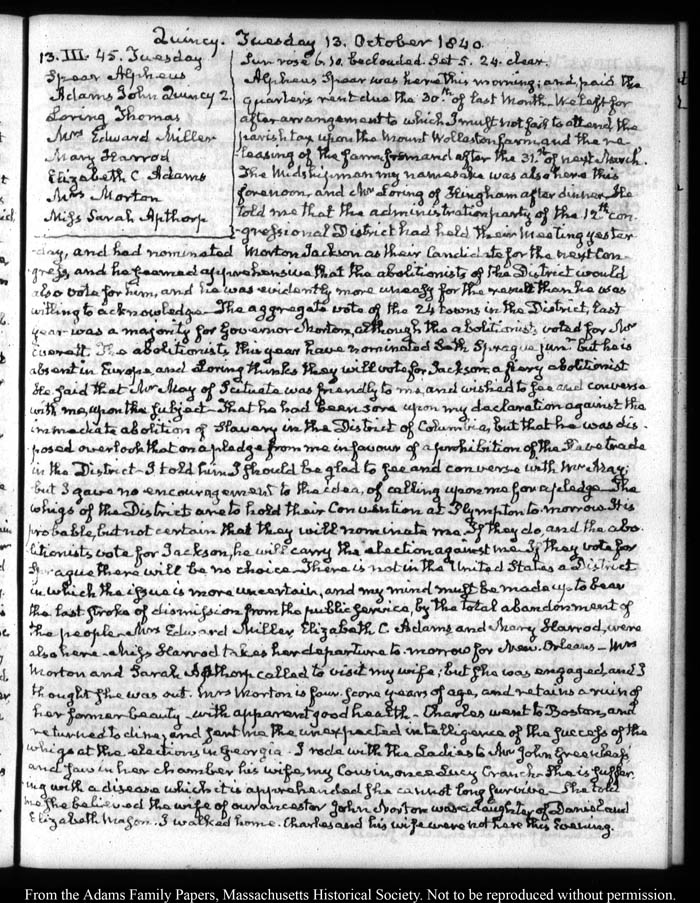 Quincy. Tuesday 13. October 1840.
13. III. 45. Tuesday
Spear Alpheus
Adams John Quincy 2.
Loring Thomas
Mrs Edward Miller
Mary Harrod
Elizabeth C. Adams
Mrs Morton
Miss Sarah Apthorp
Sun rose 6. 10. beclouded. Set 5. 24. clear.
Alpheus Spear was here this morning; and paid the
quarter's rent due the 30th of last Month. We left for
after arrangement to which I must not fail to attend, the
parish tax upon the Mount Wollaston farm, and the re-
leasing of the farm from and after the 31st of next March.
The Midshipman my namesake was also here this
forenoon, and Mr Loring of Hingham after dinner. He
told me that the administration party of the 12th con-
gressional District had held their Meeting yester-
day, and had nominated Morton Jackson as their Candidate for the next Con-
gress, and he seemed apprehensive that the abolitionists of the District would
also vote for him, and he was evidently more uneasy for the result than he was
willing to acknowledge. The aggregate vote of the 24 towns in the District, last
year was a majority for Governor Morton, although the abolitionists voted for Mr
Everett. The abolitionists this year have nominated Seth Sprague junr but he is
absent in Europe, and Loring thinks they will vote for Jackson, a fiery abolitionist
He said that Mr May of Scituate was friendly to me, and wished to see and converse
with me, upon the subject. That he had been sore upon my declaration against the
immediate abolition of Slavery in the District of Columbia, but that he was dis-
posed overlook that on a pledge from me in favour of a prohibition of the Slave trade
in the District. I told him I should be glad to see and converse with Mr May;
but I gave no encouragement to the idea, of calling upon me for a pledge. The
whigs of the District are to hold their Convention at Plympton to-morrow. It is
probable, but not certain that they will nominate me. If they do, and the abo-
litionists vote for Jackson, he will carry the election against me. If they vote for
Sprague there will be no choice. There is not in the United States a District
in which the issue is more uncertain, and my mind must be made up to bear
the last stroke of dismission from the public service, by the total abandonment of
the people. Mrs Edward Miller Elizabeth C. Adams and Mary Harrod, were
also here. Miss Harrod takes her departure to morrow for New Orleans. Mrs
Morton and Sarah Apthorp called to visit my wife; but she was engaged, and I
thought she was out. Mrs Morton is four score years of age, and retains a ruin of
her former beauty with apparent good health. Charles went to Boston, and
returned to dine, and sent me the unexpected intelligence of the success of the
whigs at the elections in Georgia. I rode with the Ladies to Mr John Greenleaf's
and saw in her chamber his wife, my Cousin, once Lucy Cranch. She is suffer-
ing with a disease which it is apprehended she cannot long survive. She told
me she believed the wife of our ancestor John Norton was a daughter of Daniel and
Elizabeth Mason. I walked home. Charles and his wife were not here this Evening.
From the Adams Family Papers, Massachusetts Historical Society. Not to be reproduced without permission.